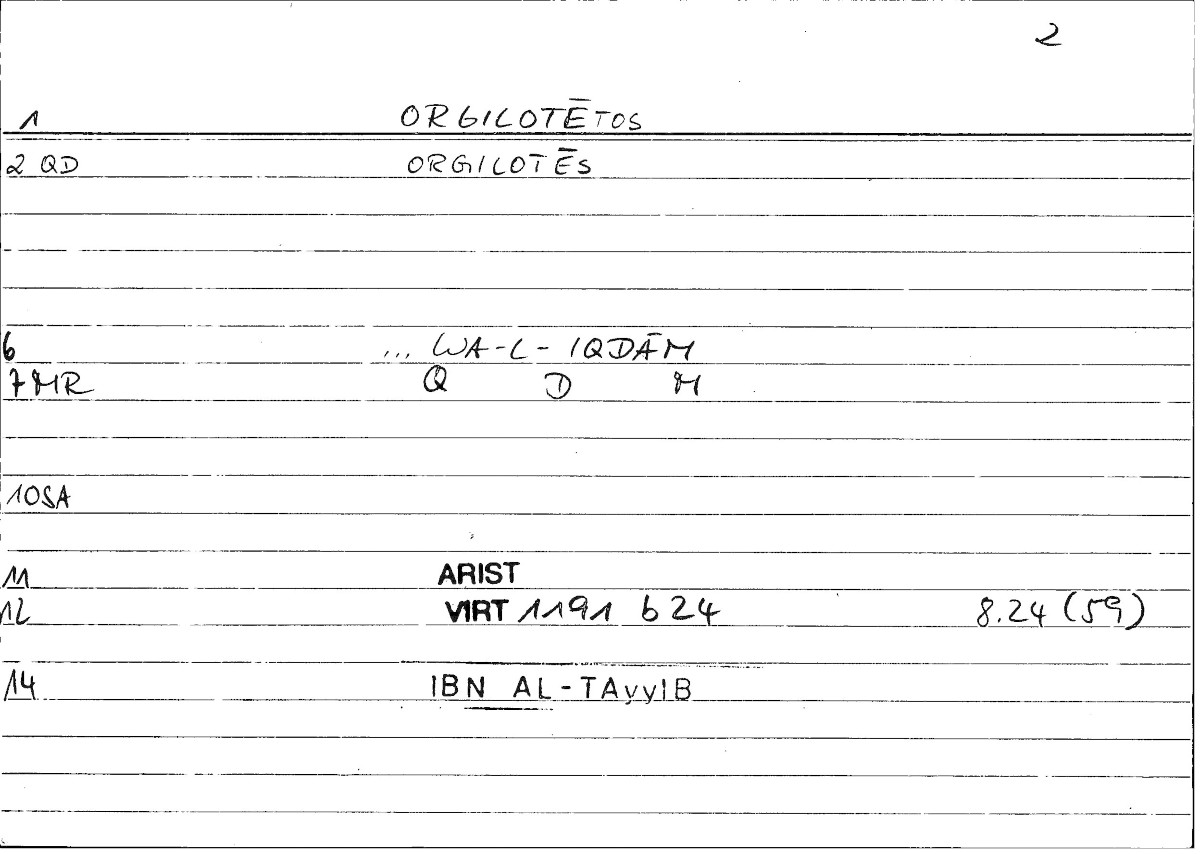 2
1 ORGILOTĒTOS
2 QD ORGILOTĒS
6 ... WA-L-IQDĀM
7 MR Q D M
10SA
11 ARIST
12 VIRT 1191 b 24 8.24 (59)
14 IBN AL-TAyyIB